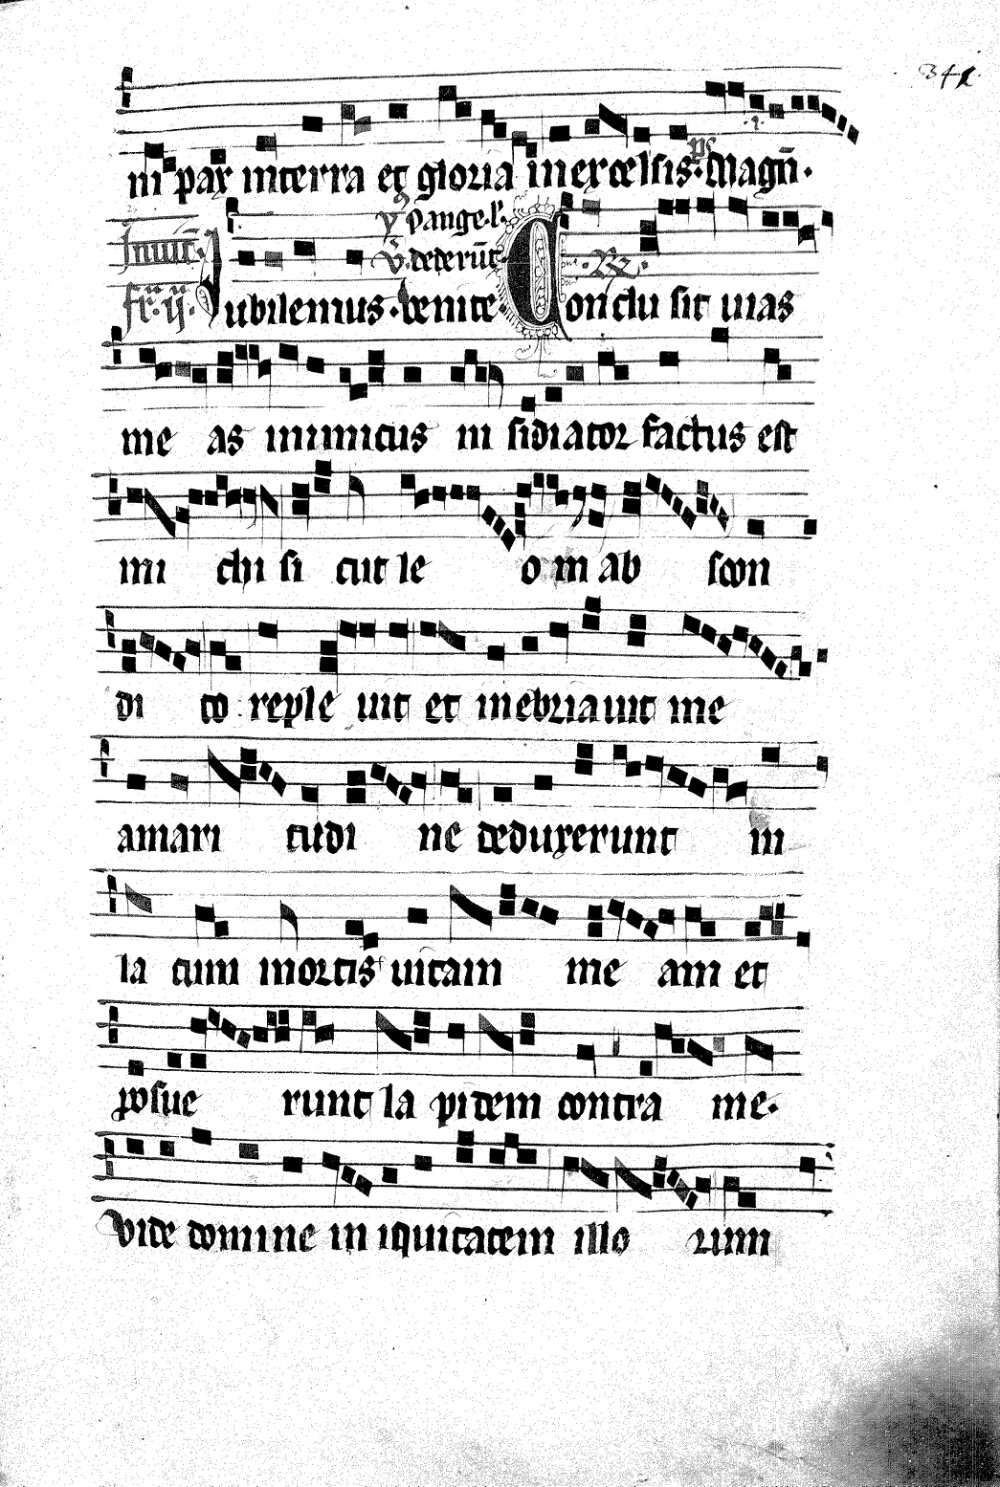 341
ni pax in terra et gloria in excelsis. ps Magn̄.
Inuit̄. ỹ Pange.l̄.
fr̄.ij. Iubilemus. v̄. deterūt R.
uenite. Conclu sit uias
me as inimicus in sidiator factus est
mi chi si cut le o in ab scon
di to reple uit et inebriauit me
amari tudi ne deduxerunt in
la cum mortis uitam me am et
posue runt la pidem contra me.
Vide domine in iquitatem illo rum